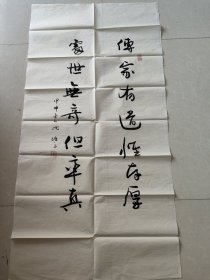 傳家有道惟存厚
處世無奇但率真
甲申